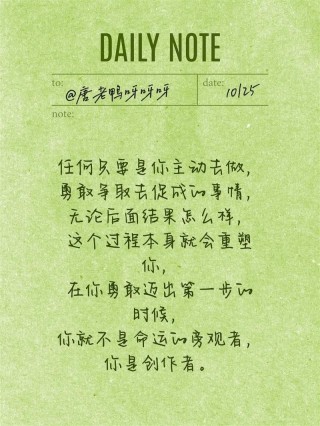 DAILY NOTE
to: @唐老鸭呀呀呀 date: 10/25
note:
任何只要是你主动去做，
勇敢争取去促成的事情，
无论后面结果怎么样，
这个过程本身就会重塑
你，
在你勇敢迈出第一步的
时候，
你就不是命运的旁观者，
你是创作者。